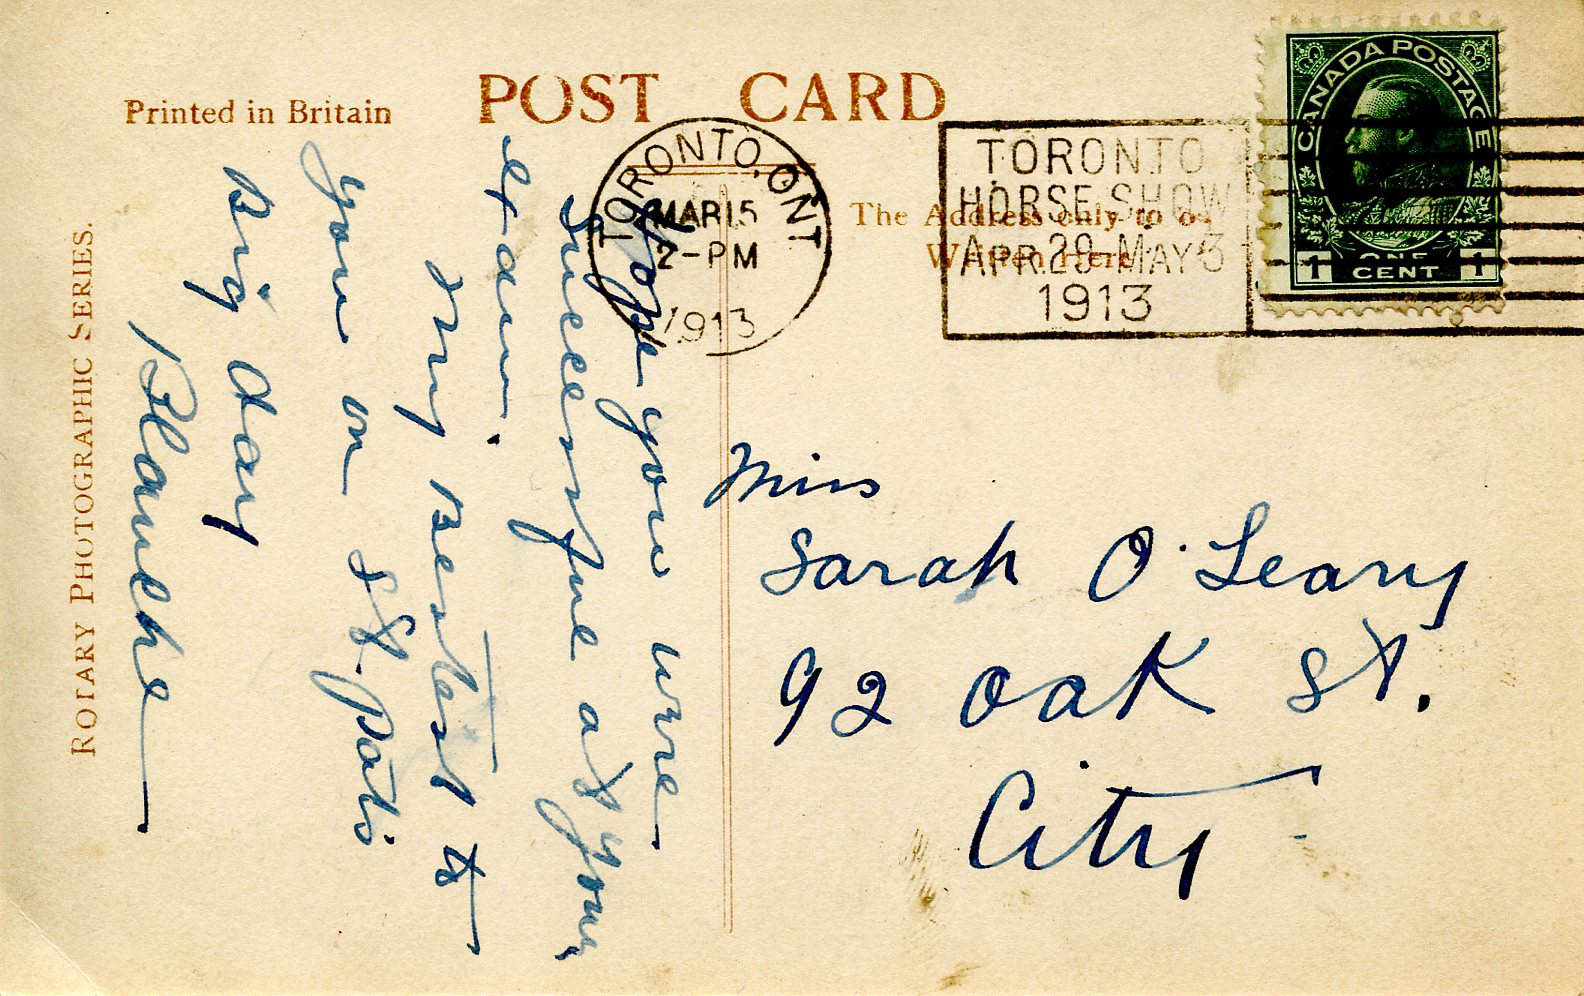 POST CARD
Printed in Britain
ROTARY PHOTOGRAPHIC SERIES.
The Address only to be
Written Here
TORONTO, ONT
MAR 15
2-PM
1913
TORONTO
HORSE SHOW
APR. 29-MAY 3
1913
CANADA POSTAGE
1 ONE CENT 1
Hope you were
Successful at your
Exam.
My Bestest to
you on St. Pat's
Big day
Blanche
Miss
Sarah O'Leary
92 Oak St.
City